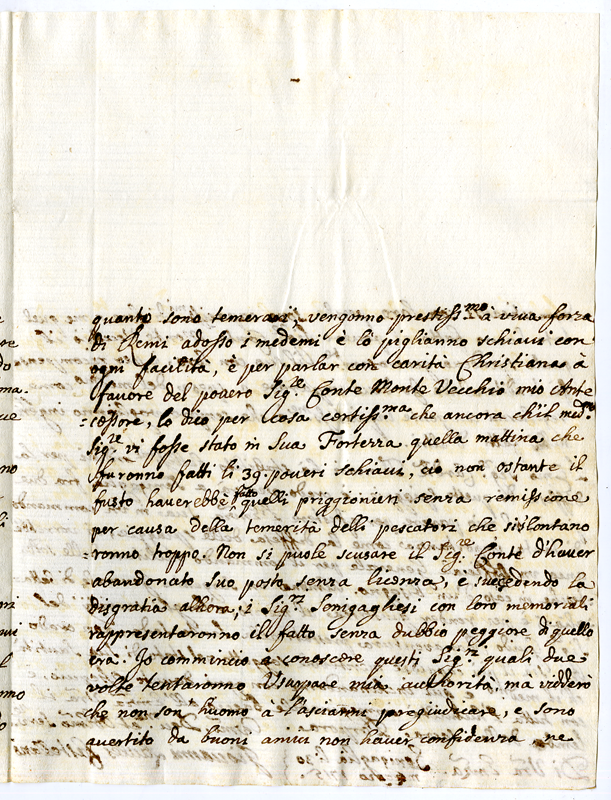 quanto sono temerarj; vengonno prestiss.mo à viva forza
di Remi adosso i medemi è lò piglianno schiavi con
ogni facilità, è per parlar con carità Christiana à
favore del povero Sig.re Conte Monte Vecchio mio Ante
=cessore, lo dico per cosa certiss.ma che ancora ch'il med.mo
Sig.re vi fosse stato in Sua Fortezza quella mattina che
furonno fatti li 39. poveri schiavi, ciò non ostante il
fusto haverebbe fatto quelli priggionieri senza remissione
per causa della temerità delli pescatori che si slontano
=ronno troppo. Non si puole scusare il Sig.re Conte d'haver
abandonato suo posto senza licenza, e succedendo la
disgratia alhora, i Sig.ri Senigagliesi con loro memoriali
rappresentaronno il fatto senza dubbio peggiore di quello
era. Jo commincio a conoscere questi Sig.ri quali due
volte tentaronno Usurpare mia authorità, mà vidderò
che non son huomo à lasciarmi pregiudicare, e sono
avertito da buoni amici non haver confidenza ne